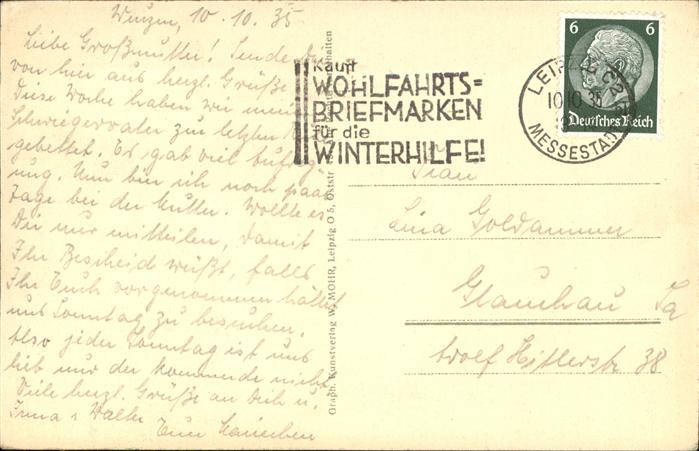 Wurzen, 10.10.35
Liebe Großmutter! Sende Dir
von hier aus herzl. Grüße
Diese Woche haben wir meinen
Schwiegervater zur letzten
gebettet. Es gab viel Aufreg-
ung. Nun bin ich noch paar
Tage bei der Mutter. Wollte es
Dir nur mitteilen, damit
Ihr Bescheid wüßt, falls
Ihr Euch vorgenommen hättet
uns Sonntag zu besuchen.
Also jeder Sonntag ist uns
lieb nur der kommende nicht.
Viele herzl. Grüße an Dich u.
Walter Euer
Graph. Kunstverlag W. MOHR, Leipzig O 5, Oststr
Kauft
WOHLFAHRTS=
BRIEFMARKEN
für die
WINTERHILFE!
LEIPZIG C2
10.10.35
MESSESTADT
6 6
Deutsches Reich
Frau
Lina Goldammer
Glauchau Sa
Adolf Hitlerstr 38